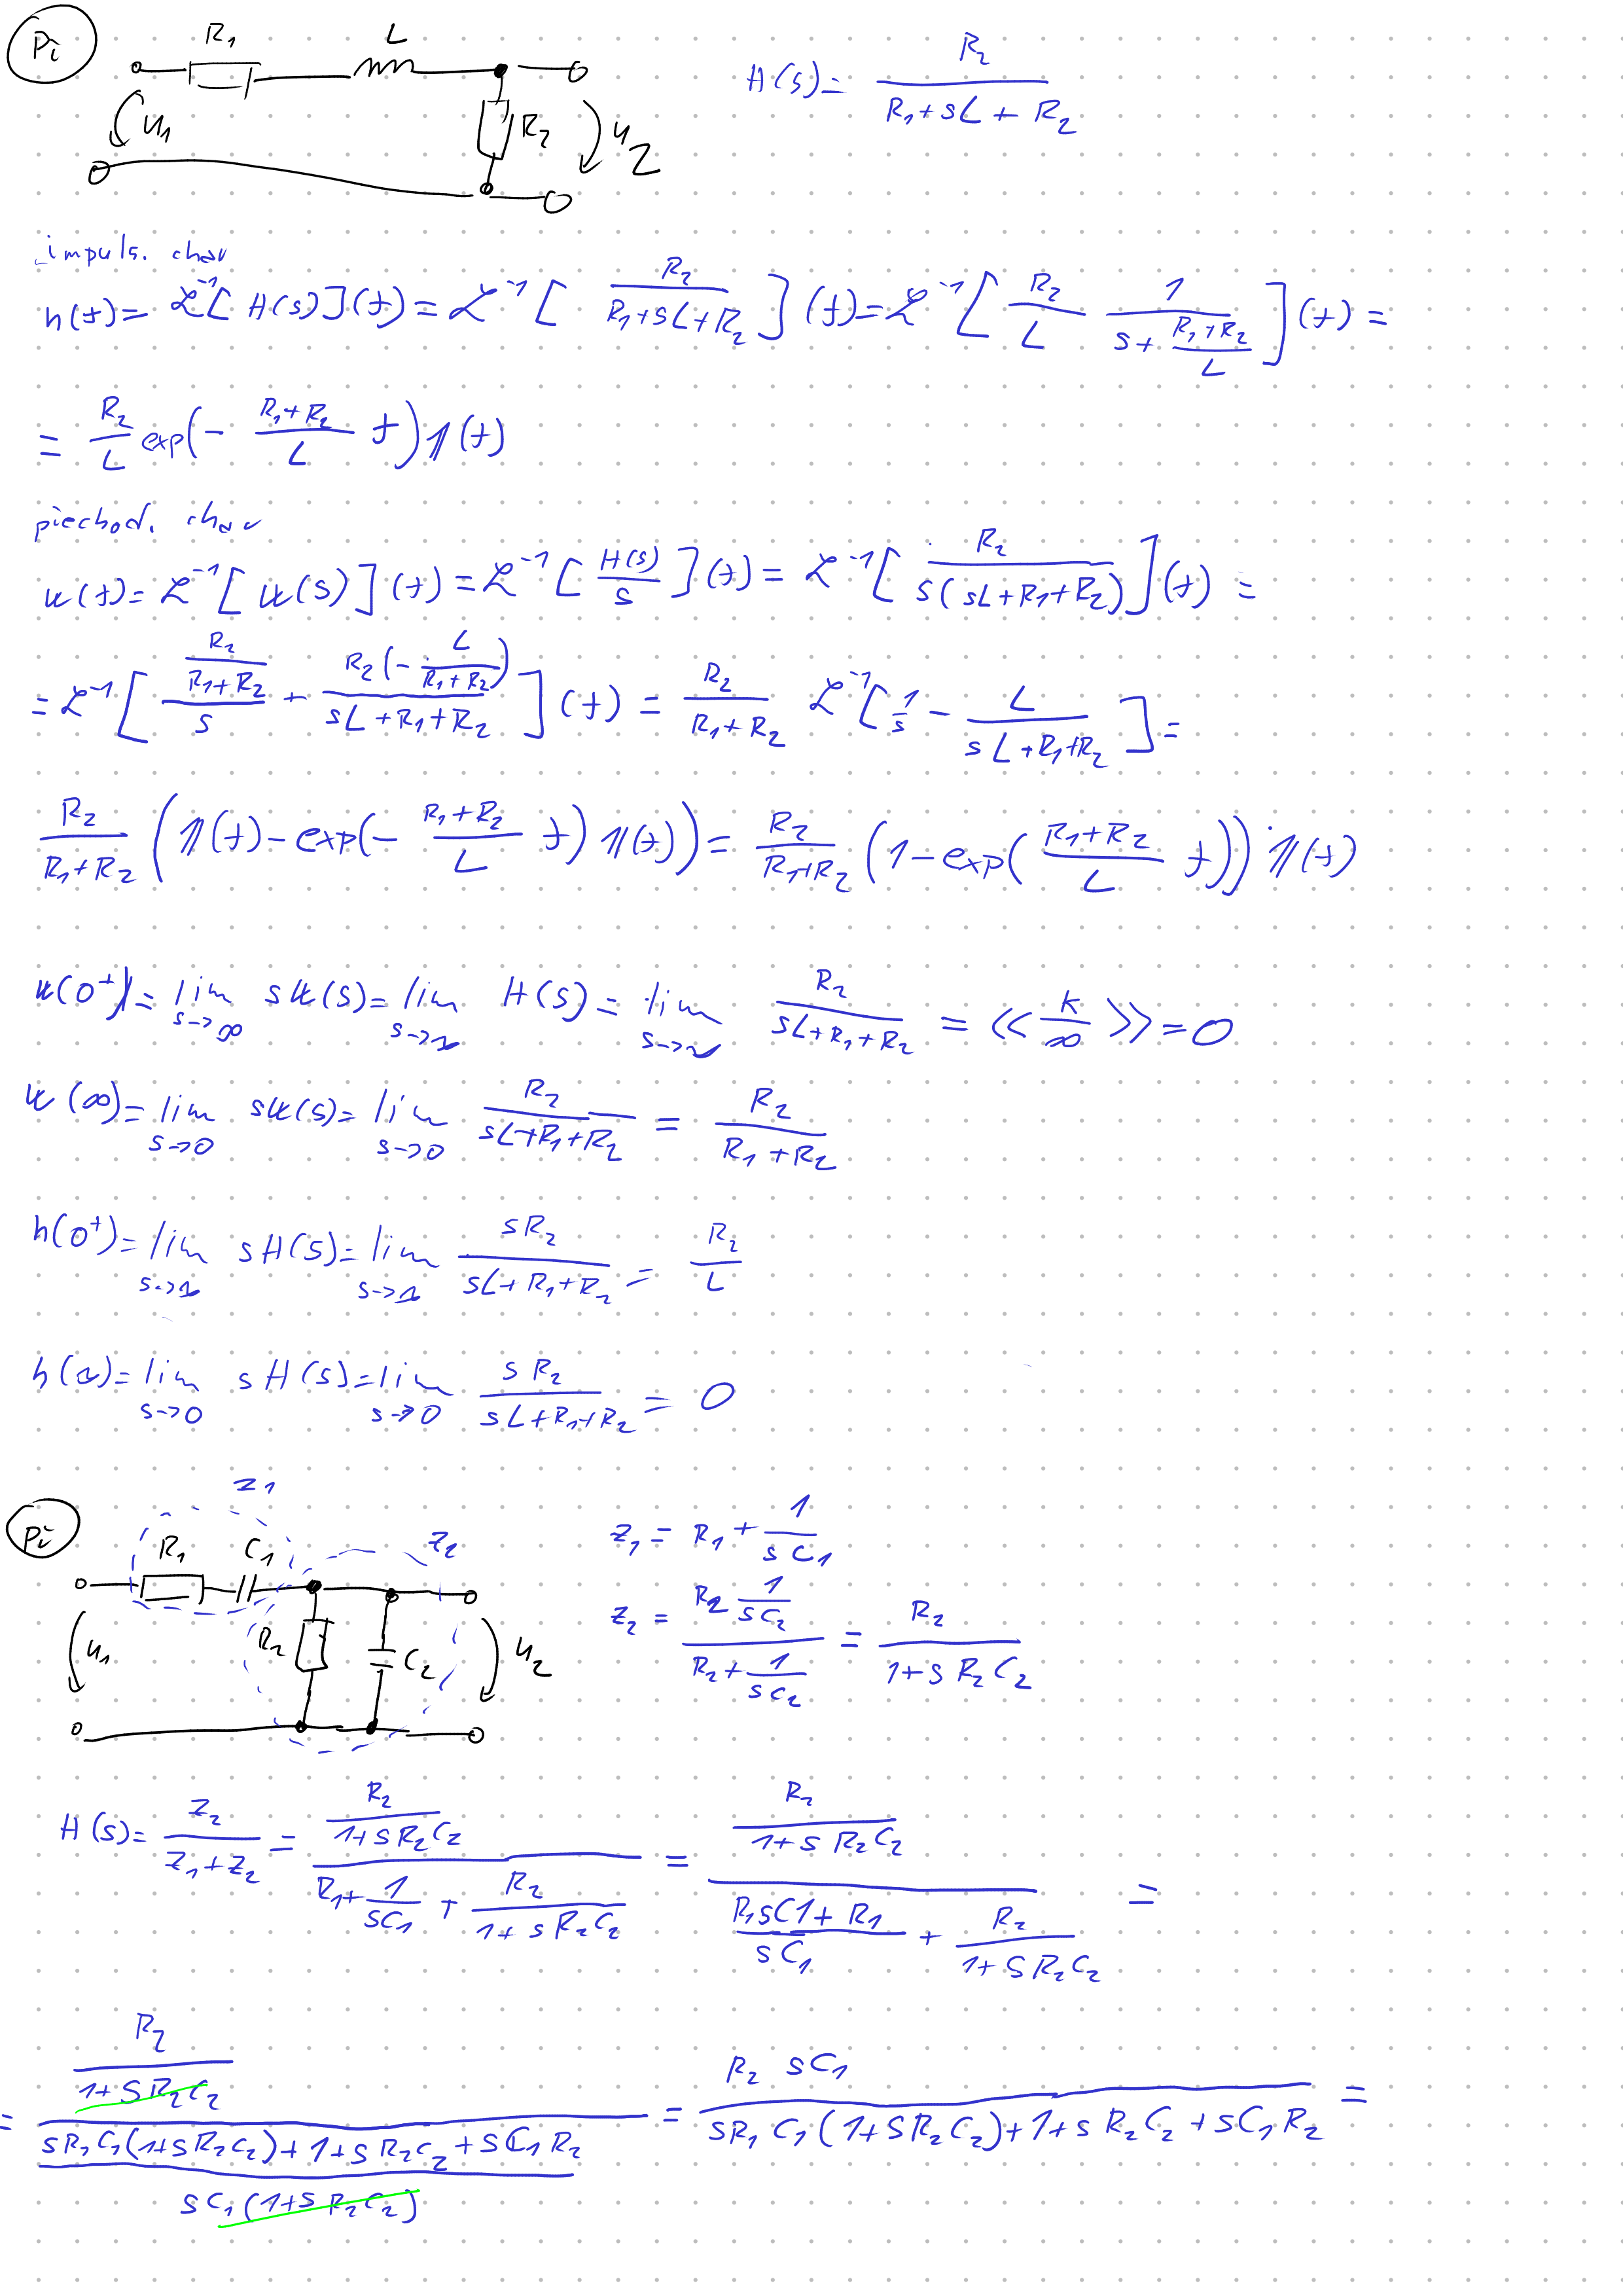 Př
R₁ L
u₁ R₂ u₂
H(s) = R₂/(R₁+sL+R₂)
impuls. char
h(t) = ℒ⁻¹[H(s)](t) = ℒ⁻¹[R₂/(R₁+sL+R₂)](t) = ℒ⁻¹[R₂/L 1/(s+(R₁+R₂)/L)](t) =
= R₂/L exp(-(R₁+R₂)/L t)𝟙(t)
přechod. char
k(t) = ℒ⁻¹[K(s)](t) = ℒ⁻¹[H(s)/s](t) = ℒ⁻¹[R₂/(s(sL+R₁+R₂))](t) =
= ℒ⁻¹[(R₂/(R₁+R₂))/s + R₂(-L/(R₁+R₂))/(sL+R₁+R₂)](t) = R₂/(R₁+R₂) ℒ⁻¹[1/s - L/(sL+R₁+R₂)] =
R₂/(R₁+R₂) (𝟙(t) - exp(-(R₁+R₂)/L t)𝟙(t)) = R₂/(R₁+R₂) (1 - exp((R₁+R₂)/L t))𝟙(t)
k(0⁺) = lim s→∞ sK(s) = lim s→∞ H(s) = lim s→∞ R₂/(sL+R₁+R₂) = «k/∞» = 0
k(∞) = lim s→0 sK(s) = lim s→0 R₂/(sL+R₁+R₂) = R₂/(R₁+R₂)
h(0⁺) = lim s→∞ sH(s) = lim s→∞ sR₂/(sL+R₁+R₂) = R₂/L
h(∞) = lim s→0 sH(s) = lim s→0 sR₂/(sL+R₁+R₂) = 0
Př
Z₁
R₁ C₁ Z₂
u₁ R₂ C₂ u₂
Z₁ = R₁ + 1/(sC₁)
Z₂ = (R₂ 1/(sC₂))/(R₂+1/(sC₂)) = R₂/(1+sR₂C₂)
H(s) = Z₂/(Z₁+Z₂) = (R₂/(1+sR₂C₂))/(R₁+1/(sC₁) + R₂/(1+sR₂C₂)) = (R₂/(1+sR₂C₂))/((R₁sC1+R₁)/(sC₁) + R₂/(1+sR₂C₂)) =
= (R₂/(1+sR₂C₂))/((sR₁C₁(1+sR₂C₂)+1+sR₂C₂+sC₁R₂)/(sC₁(1+sR₂C₂))) = R₂ sC₁/(sR₁C₁(1+sR₂C₂)+1+sR₂C₂+sC₁R₂) =